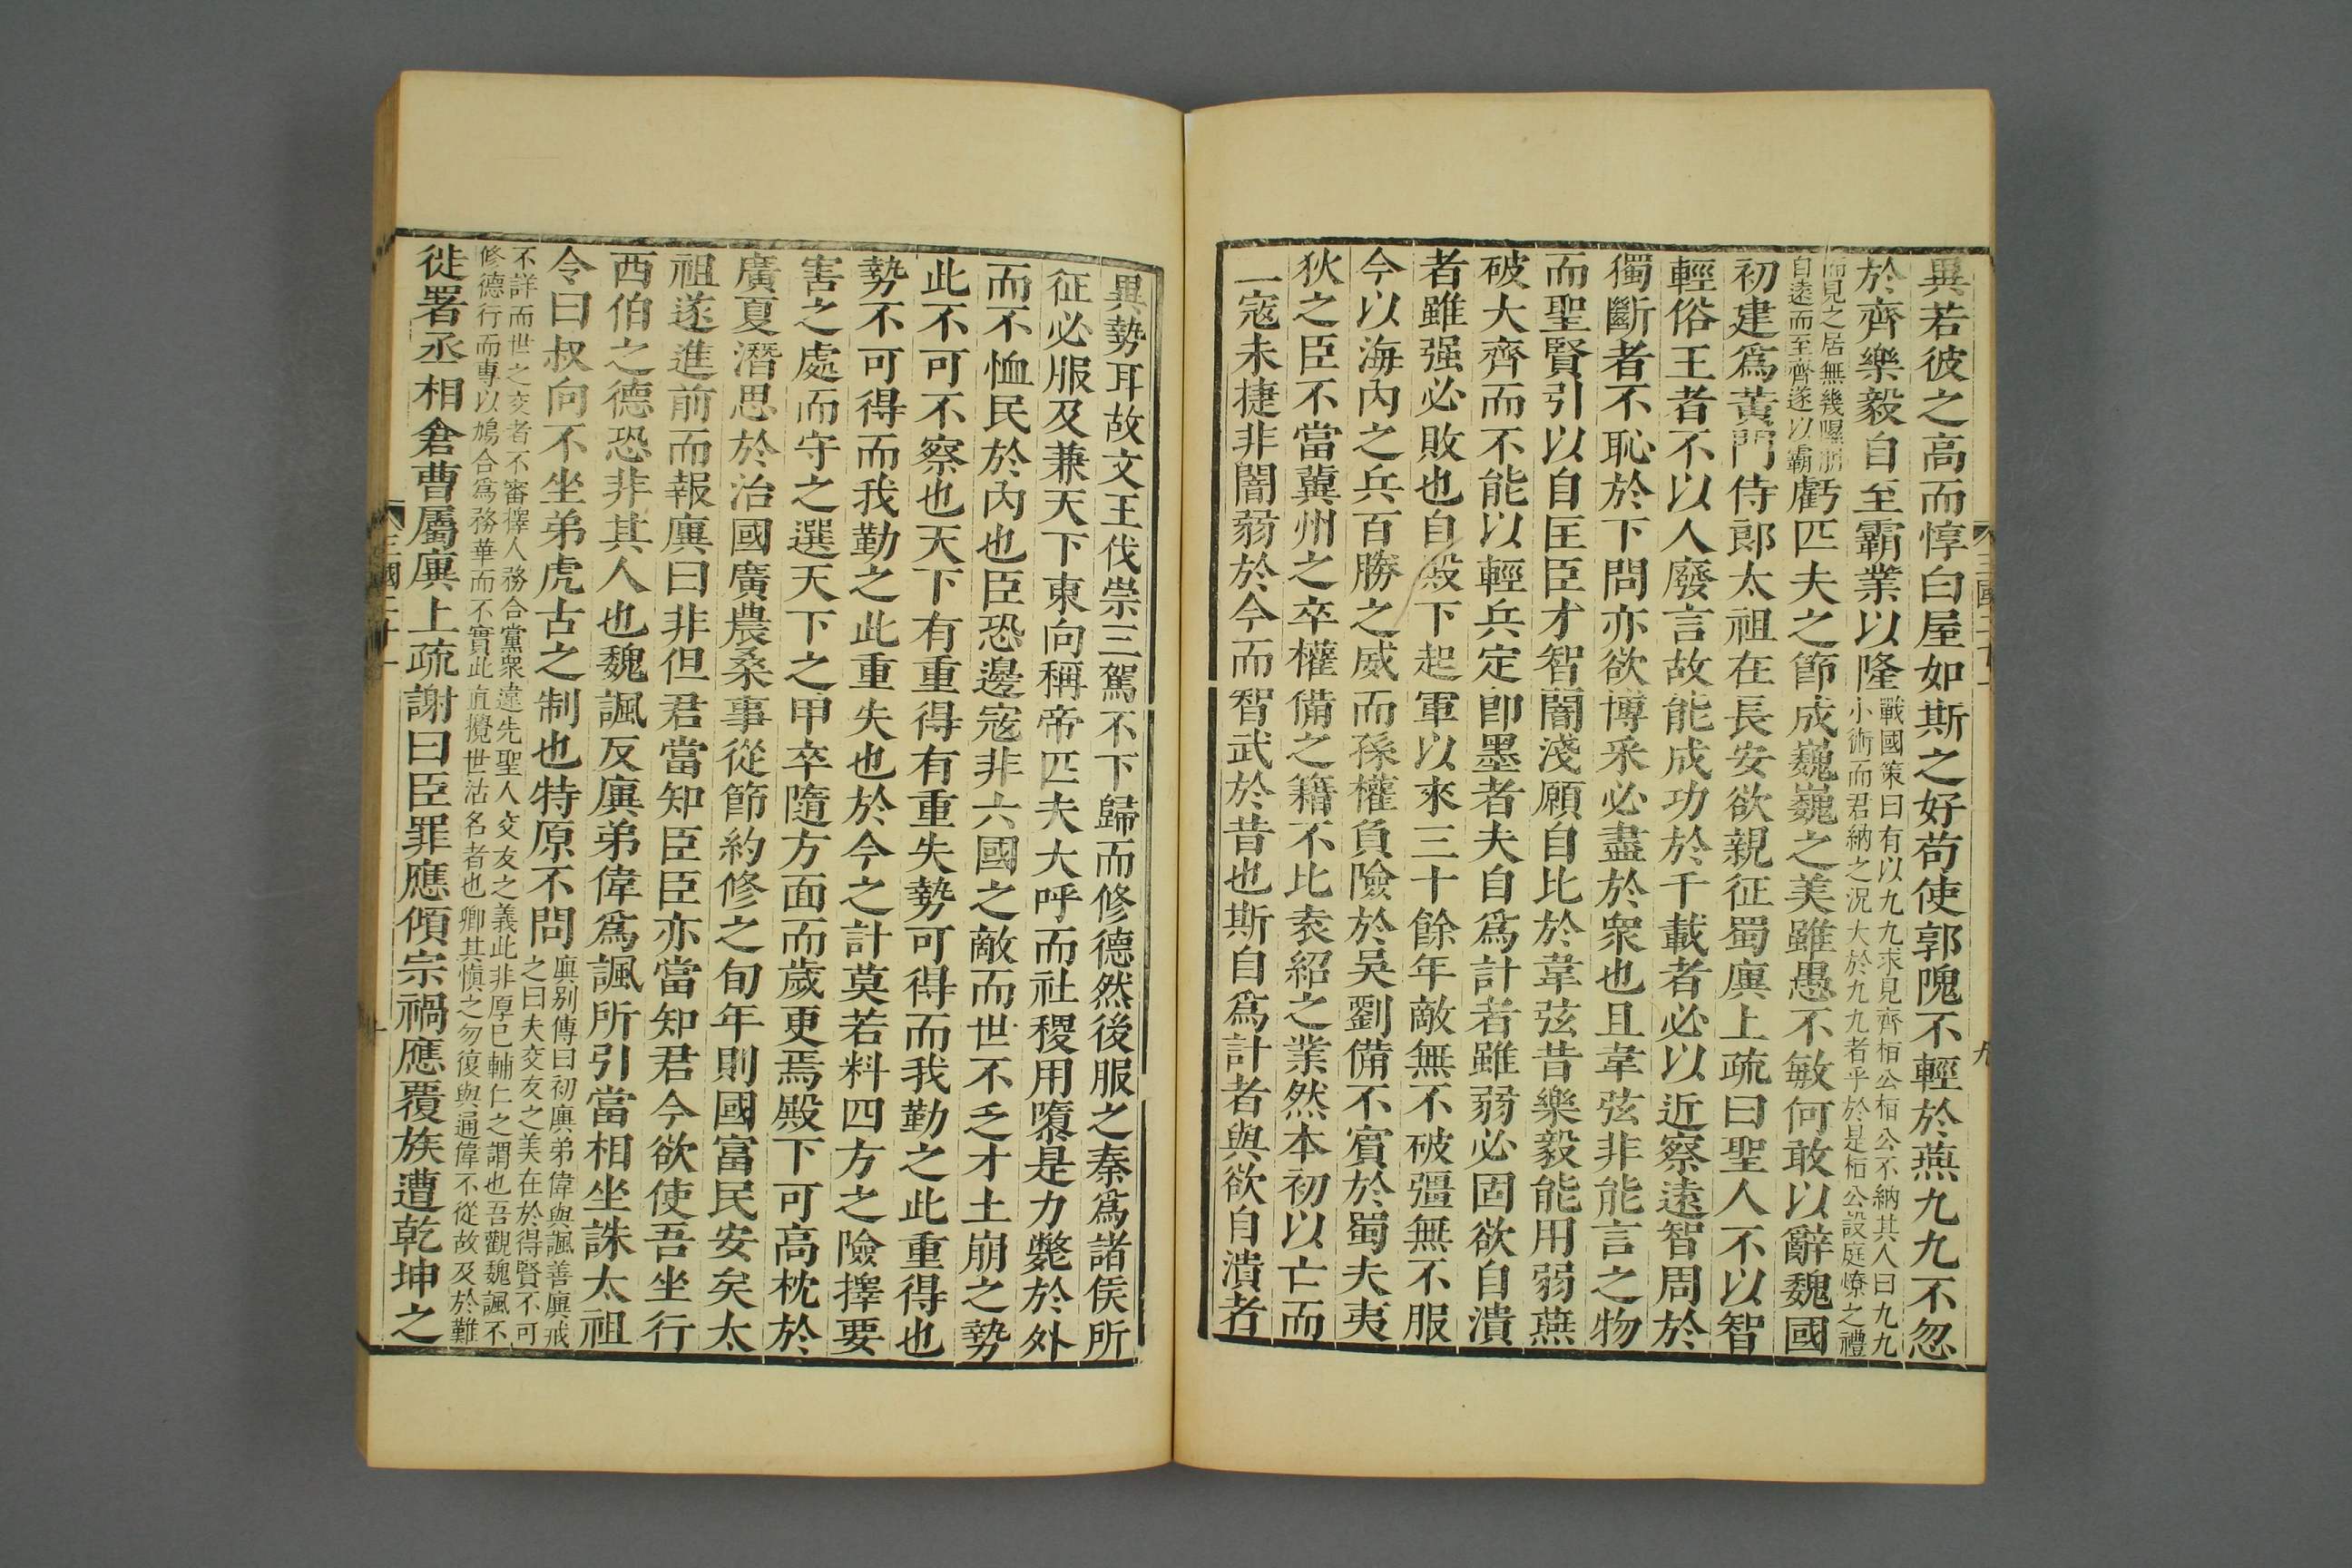 異若彼之高而惇白屋如斯之好苟使郭隗不輕於燕九九不忽
於齊樂毅自至霸業以隆戰國策曰有以九九求見齊桓公桓公不納其人曰九九
小術而君納之況大於九九者乎於是桓公設庭燎之禮
而見之居無幾隰朋
自遠而至齊遂以霸虧匹夫之節成巍巍之美雖愚不敏何敢以辭魏國
初建爲黃門侍郎太祖在長安欲親征蜀廙上疏曰聖人不以智
輕俗王者不以人廢言故能成功於千載者必以近察遠智周於
獨斷者不恥於下問亦欲博采必盡於衆也且韋弦非能言之物
而聖賢引以自匡臣才智闇淺願自比於韋弦昔樂毅能用弱燕
破大齊而不能以輕兵定卽墨者夫自爲計者雖弱必固欲自潰
者雖强必敗也自殿下起軍以來三十餘年敵無不破彊無不服
今以海內之兵百勝之威而孫權負險於吳劉備不賓於蜀夫夷
狄之臣不當冀州之卒權備之籍不比袁紹之業然本初以亡而
二寇未捷非闇弱於今而智武於昔也斯自爲計者與欲自潰者
三國二十一
九
異勢耳故文王伐崇三駕不下歸而修德然後服之秦爲諸侯所
征必服及兼天下東向稱帝匹夫大呼而社稷用隳是力斃於外
而不恤民於內也臣恐邊寇非六國之敵而世不乏才土崩之勢
此不可不察也天下有重得有重失勢可得而我勤之此重得也
勢不可得而我勤之此重失也於今之計莫若料四方之險擇要
害之處而守之選天下之甲卒隨方面而歲更焉殿下可高枕於
廣夏潛思於治國廣農桑事從節約修之旬年則國富民安矣太
祖遂進前而報廙曰非但君當知臣臣亦當知君今欲使吾坐行
西伯之德恐非其人也魏諷反廙弟偉爲諷所引當相坐誅太祖
令曰叔向不坐弟虎古之制也特原不問廙别傳曰初廙弟偉與諷善廙戒
之曰夫交友之美在於得賢不可
不詳而世之交者不審擇人務合黨衆違先聖人交友之義此非厚已輔仁之謂也吾觀魏諷不
修德行而專以鳩合爲務華而不實此直攪世沽名者也卿其愼之勿復與通偉不從故及於難
徙署丞相倉曹屬廙上疏謝曰臣罪應傾宗禍應覆族遭乾坤之
三國二十一
十